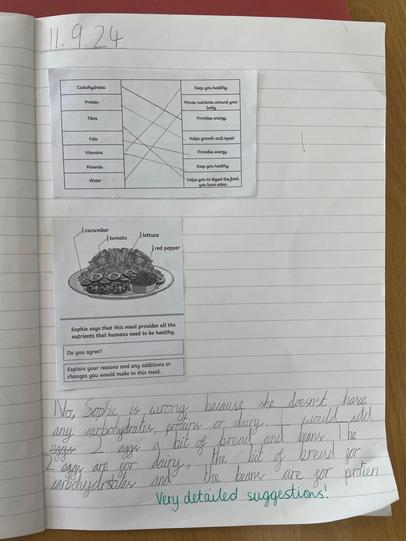 11.9.24
Carbohydrates
Keep you healthy
Protein
Moves nutrients around your body
Fibre
Provides energy
Fats
Helps growth and repair
Vitamins
Provides energy
Minerals
Keep you healthy
Water
Helps you to digest the food you have eaten
cucumber
tomato
lettuce
red pepper
Sophie says that this meal provides all the
nutrients that humans need to be healthy.
Do you agree?
Explain your reasons and any additions or
changes you would make to this meal.
No, Sophie is wrong because she doesn't have
any carbohydrates, protiens or dairy. I would add
eggs 2 eggs a bit of bread and beans The
2 eggs are for dairy, the bit of bread for
carbohydrates and the beans are for protien
Very detailed suggestions!